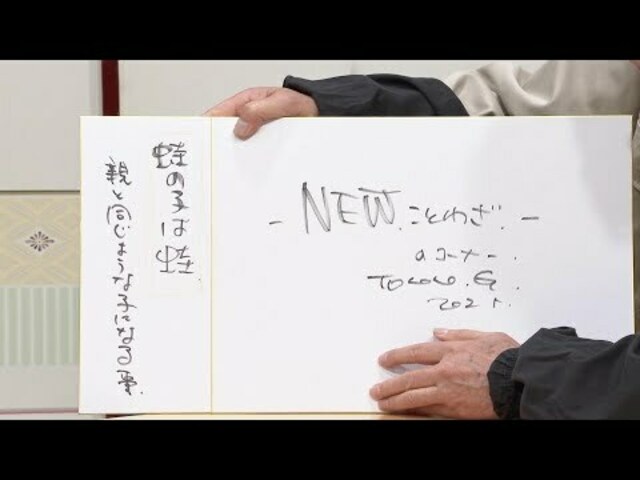 蛙の子は蛙.
親と同じような子になる事.
- NEW. ことわざ. -
のコーナー.